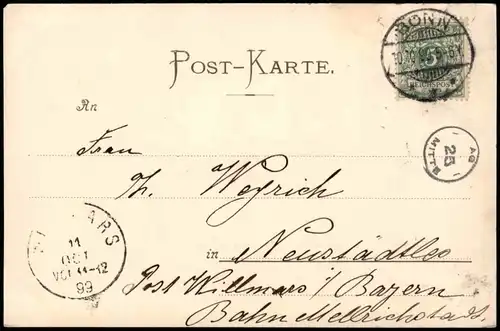 BONN
5
REICHSPOST
POST-KARTE.
An
Frau
Th. Weyrich
in Neustädtles
Post Willmars / Bayern
Bahn Mellrichstadt.
25
MITT
ARS
11
OCT
VOR 11-12
99